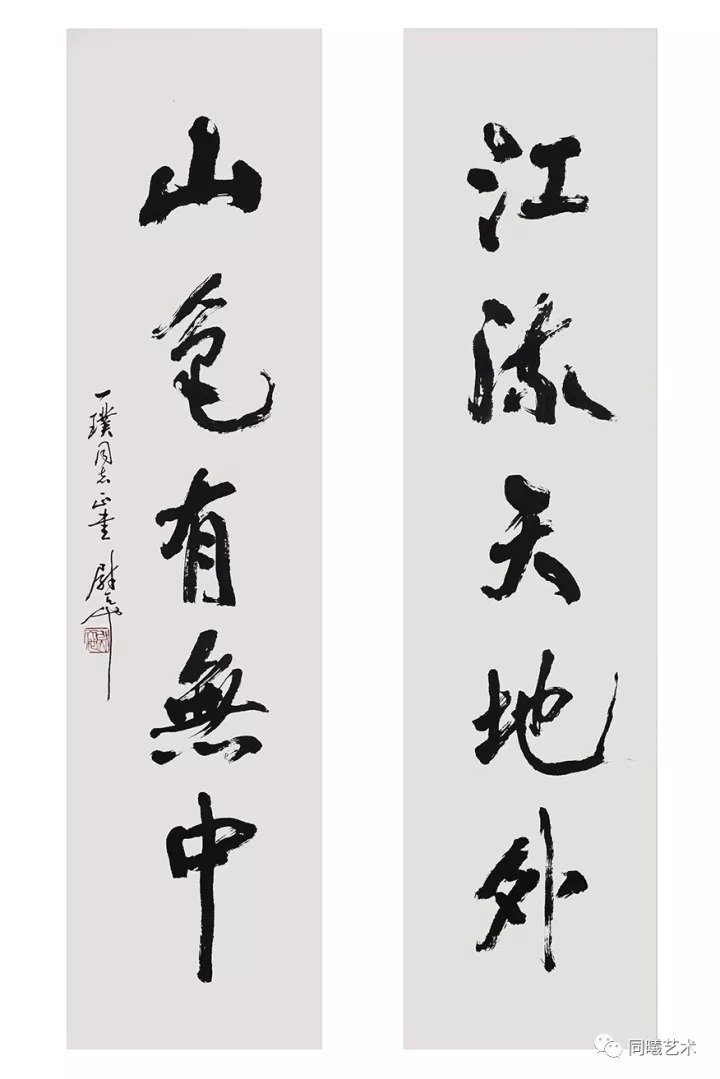 江流天地外
山色有無中
一璞同志正書 尉天池
同曦艺术